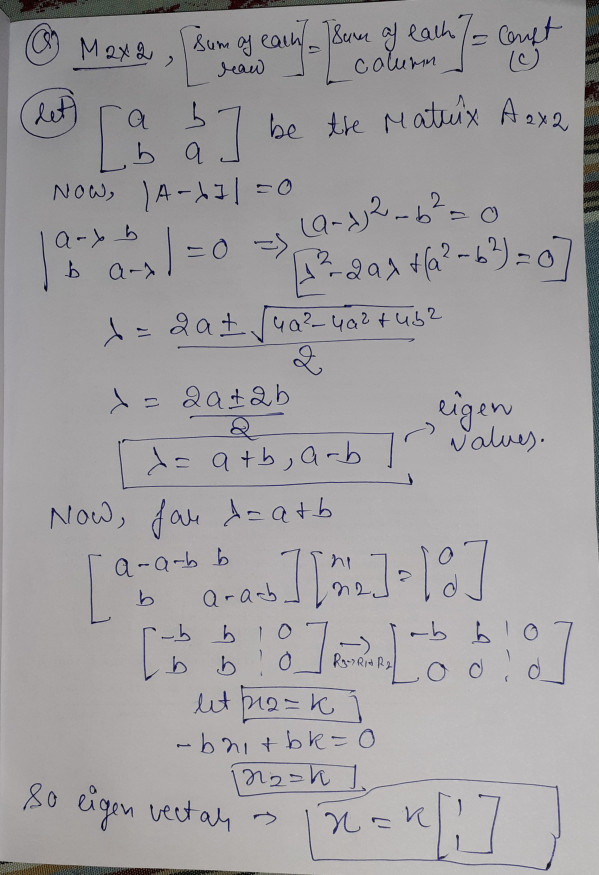 Q) M2x2, [Sum of each row] = [Sum of each column] = Const (c)
Let [a b; b a] be the Matrix A2x2
Now, |A-λI| = 0
|a-λ b; b a-λ| = 0 => (a-λ)² - b² = 0
[λ² - 2aλ + (a² - b²) = 0]
λ = 2a ± √4a² - 4a² + 4b² / 2
λ = 2a ± 2b / 2
λ = a+b, a-b → eigen values.
Now, for λ = a+b
[a-a-b b; b a-a-b] [x1; x2] = [0; 0]
[-b b | 0; b b | 0] → R2→R1+R2 [-b b | 0; 0 0 | 0]
let x2 = k
-bx1 + bk = 0
x2 = k
So eigen vector → x = k [1; 1]